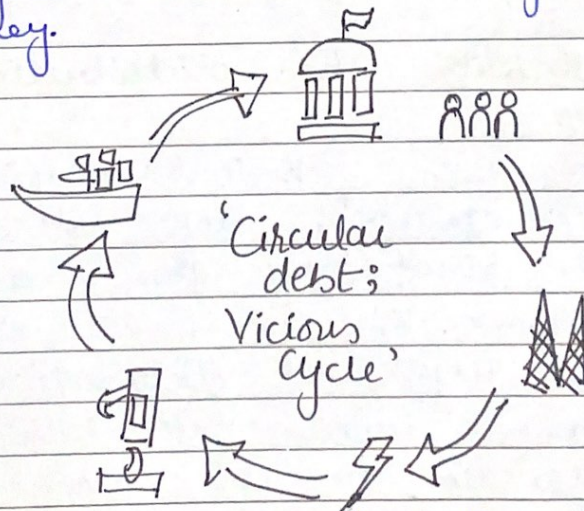 ley.
'Circular
debt;
Vicious
Cycle'